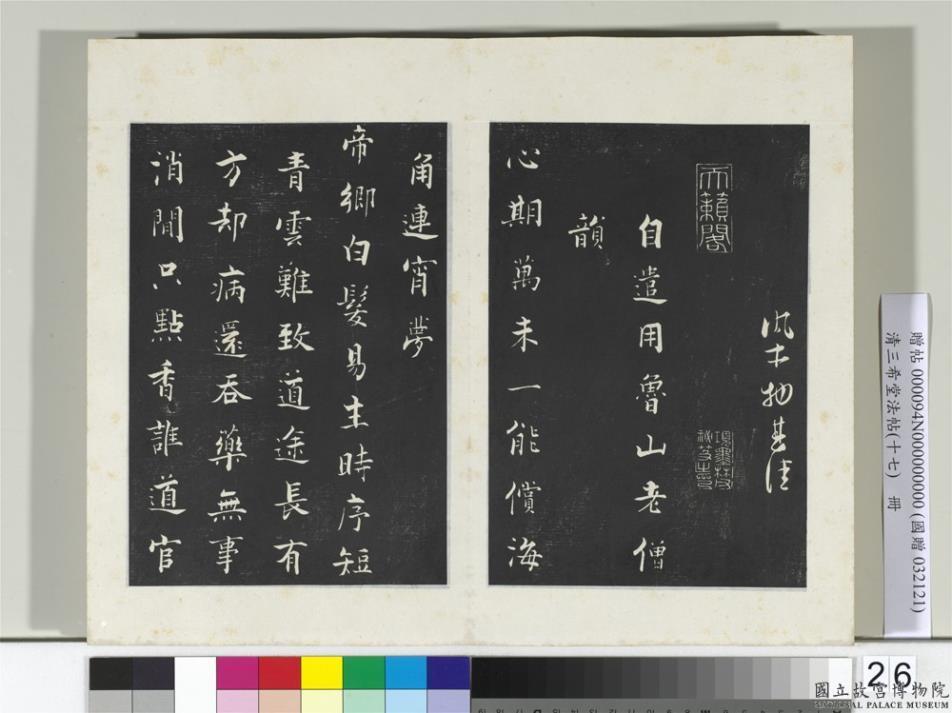 風土物甚佳
天籟閣
自遣用魯山老僧
韻
心期萬未一能償海
角連宵夢
帝鄉白髮易生時序短
青雲難致道途長有
方却病還吞藥無事
消閒只點香誰道官
贈帖 000094N000000000 (國贈 032121)
清三希堂法帖(十七) 冊
26
國立故宮博物院
NATIONAL PALACE MUSEUM